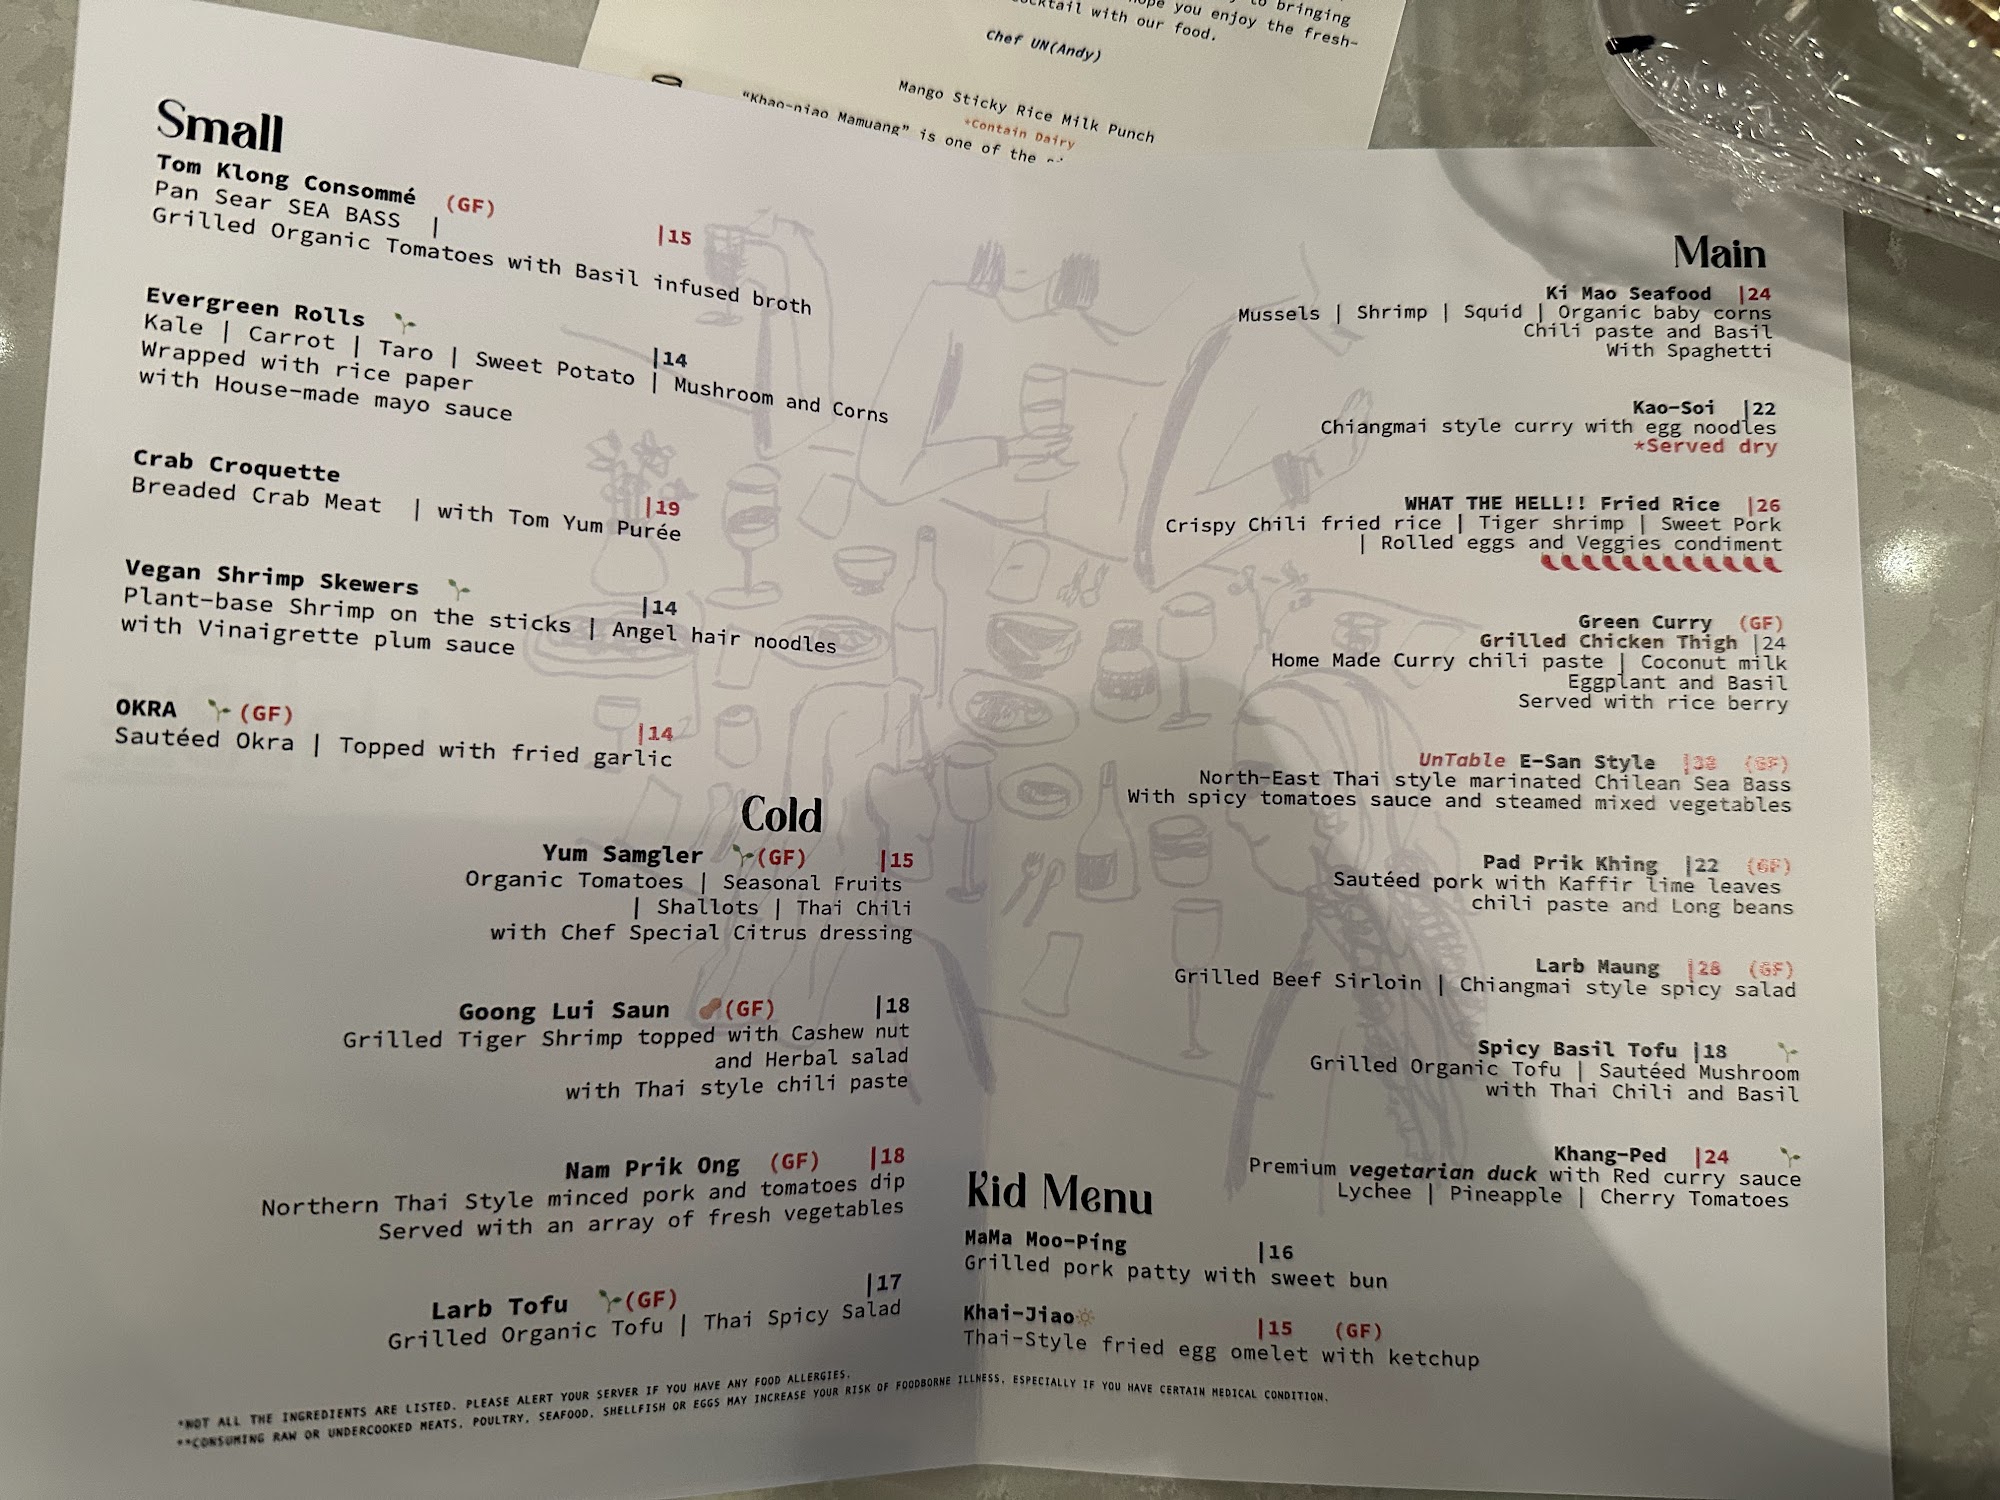 cktail with our food.
to bringing
you enjoy the fresh-
Chef UN(Andy)
Mango Sticky Rice Milk Punch
*Contain Dairy
"Khao-niao Mamuang" is one of the
Small
Tom Klong Consommé (GF)
Pan Sear SEA BASS | |15
Grilled Organic Tomatoes with Basil infused broth
Evergreen Rolls
Kale | Carrot | Taro | Sweet Potato | Mushroom and Corns |14
Wrapped with rice paper
with House-made mayo sauce
Crab Croquette |19
Breaded Crab Meat | with Tom Yum Purée
Vegan Shrimp Skewers |14
Plant-base Shrimp on the sticks | Angel hair noodles
with Vinaigrette plum sauce
OKRA (GF) |14
Sautéed Okra | Topped with fried garlic
Cold
Yum Samgler (GF) |15
Organic Tomatoes | Seasonal Fruits
| Shallots | Thai Chili
with Chef Special Citrus dressing
Goong Lui Saun (GF) |18
Grilled Tiger Shrimp topped with Cashew nut
and Herbal salad
with Thai style chili paste
Nam Prik Ong (GF) |18
Northern Thai Style minced pork and tomatoes dip
Served with an array of fresh vegetables
Larb Tofu (GF) |17
Grilled Organic Tofu | Thai Spicy Salad
Main
Ki Mao Seafood |24
Mussels | Shrimp | Squid | Organic baby corns
Chili paste and Basil
With Spaghetti
Kao-Soi |22
Chiangmai style curry with egg noodles
*Served dry
WHAT THE HELL!! Fried Rice |26
Crispy Chili fried rice | Tiger shrimp | Sweet Pork
| Rolled eggs and Veggies condiment
Green Curry (GF)
Grilled Chicken Thigh |24
Home Made Curry chili paste | Coconut milk
Eggplant and Basil
Served with rice berry
UnTable E-San Style |38 (GF)
North-East Thai style marinated Chilean Sea Bass
With spicy tomatoes sauce and steamed mixed vegetables
Pad Prik Khing |22 (GF)
Sautéed pork with Kaffir lime leaves
chili paste and Long beans
Larb Maung |28 (GF)
Grilled Beef Sirloin | Chiangmai style spicy salad
Spicy Basil Tofu |18
Grilled Organic Tofu | Sautéed Mushroom
with Thai Chili and Basil
Khang-Ped |24
Premium vegetarian duck with Red curry sauce
Lychee | Pineapple | Cherry Tomatoes
Kid Menu
MaMa Moo-Ping |16
Grilled pork patty with sweet bun
Khai-Jiao |15 (GF)
Thai-Style fried egg omelet with ketchup
*NOT ALL THE INGREDIENTS ARE LISTED. PLEASE ALERT YOUR SERVER IF YOU HAVE ANY FOOD ALLERGIES.
**CONSUMING RAW OR UNDERCOOKED MEATS, POULTRY, SEAFOOD, SHELLFISH OR EGGS MAY INCREASE YOUR RISK OF FOODBORNE ILLNESS, ESPECIALLY IF YOU HAVE CERTAIN MEDICAL CONDITION.